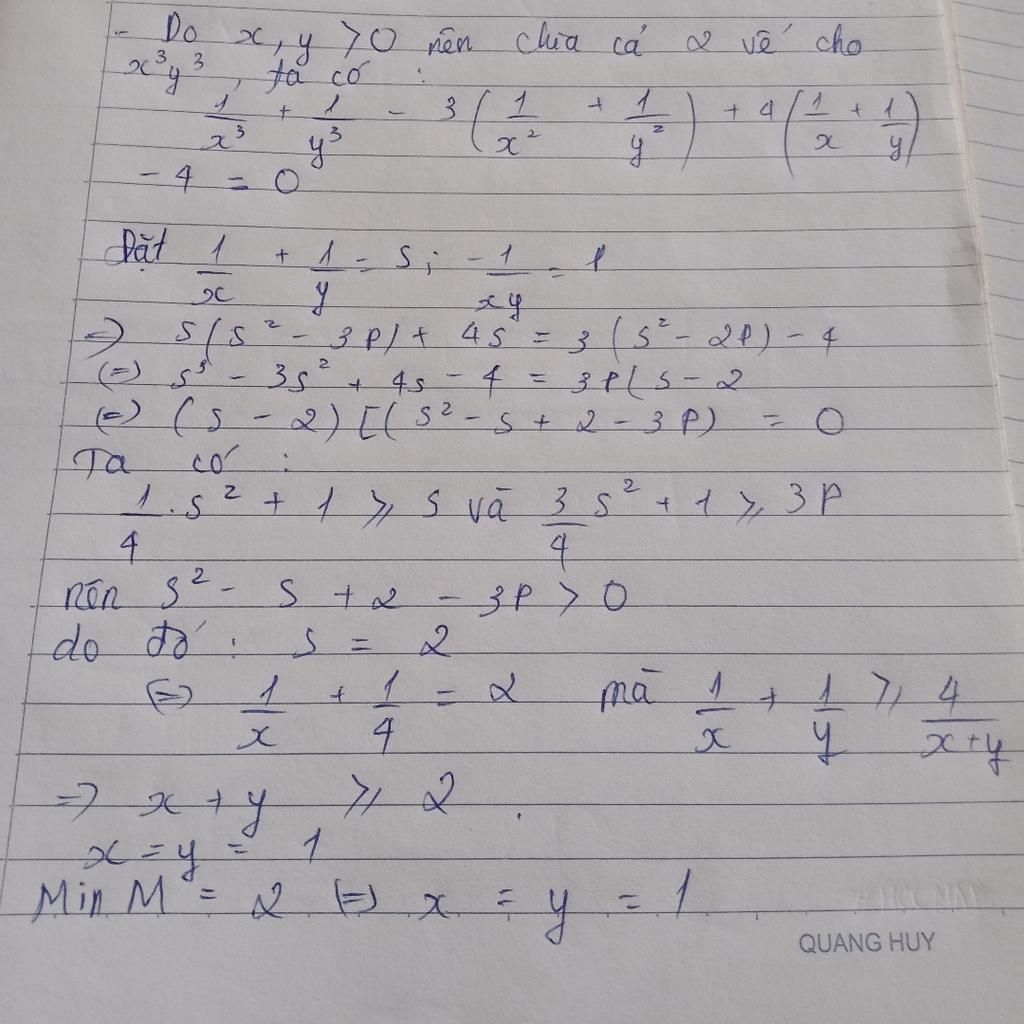 - Do x, y > 0 nên chia cả 2 vế cho
x³y³, ta có :
1/x³ + 1/y³ - 3(1/x² + 1/y²) + 4(1/x + 1/y)
- 4 = 0
Đặt 1/x + 1/y = S; 1/xy = P
=> S(S² - 3P) + 4S = 3(S² - 2P) - 4
(=) S³ - 3S² + 4S - 4 = 3P(S - 2
(=) (S - 2)[(S² - S + 2 - 3P) = 0
Ta có :
1/4.S² + 1 ≥ S và 3/4 S² + 1 ≥ 3P
nên S² - S + 2 - 3P > 0
do đó : S = 2
(=) 1/x + 1/4 = 2 mà 1/x + 1/y ≥ 4/x+y
=> x + y ≥ 2.
x = y = 1
Min M = 2 (=) x = y = 1
QUANG HUY